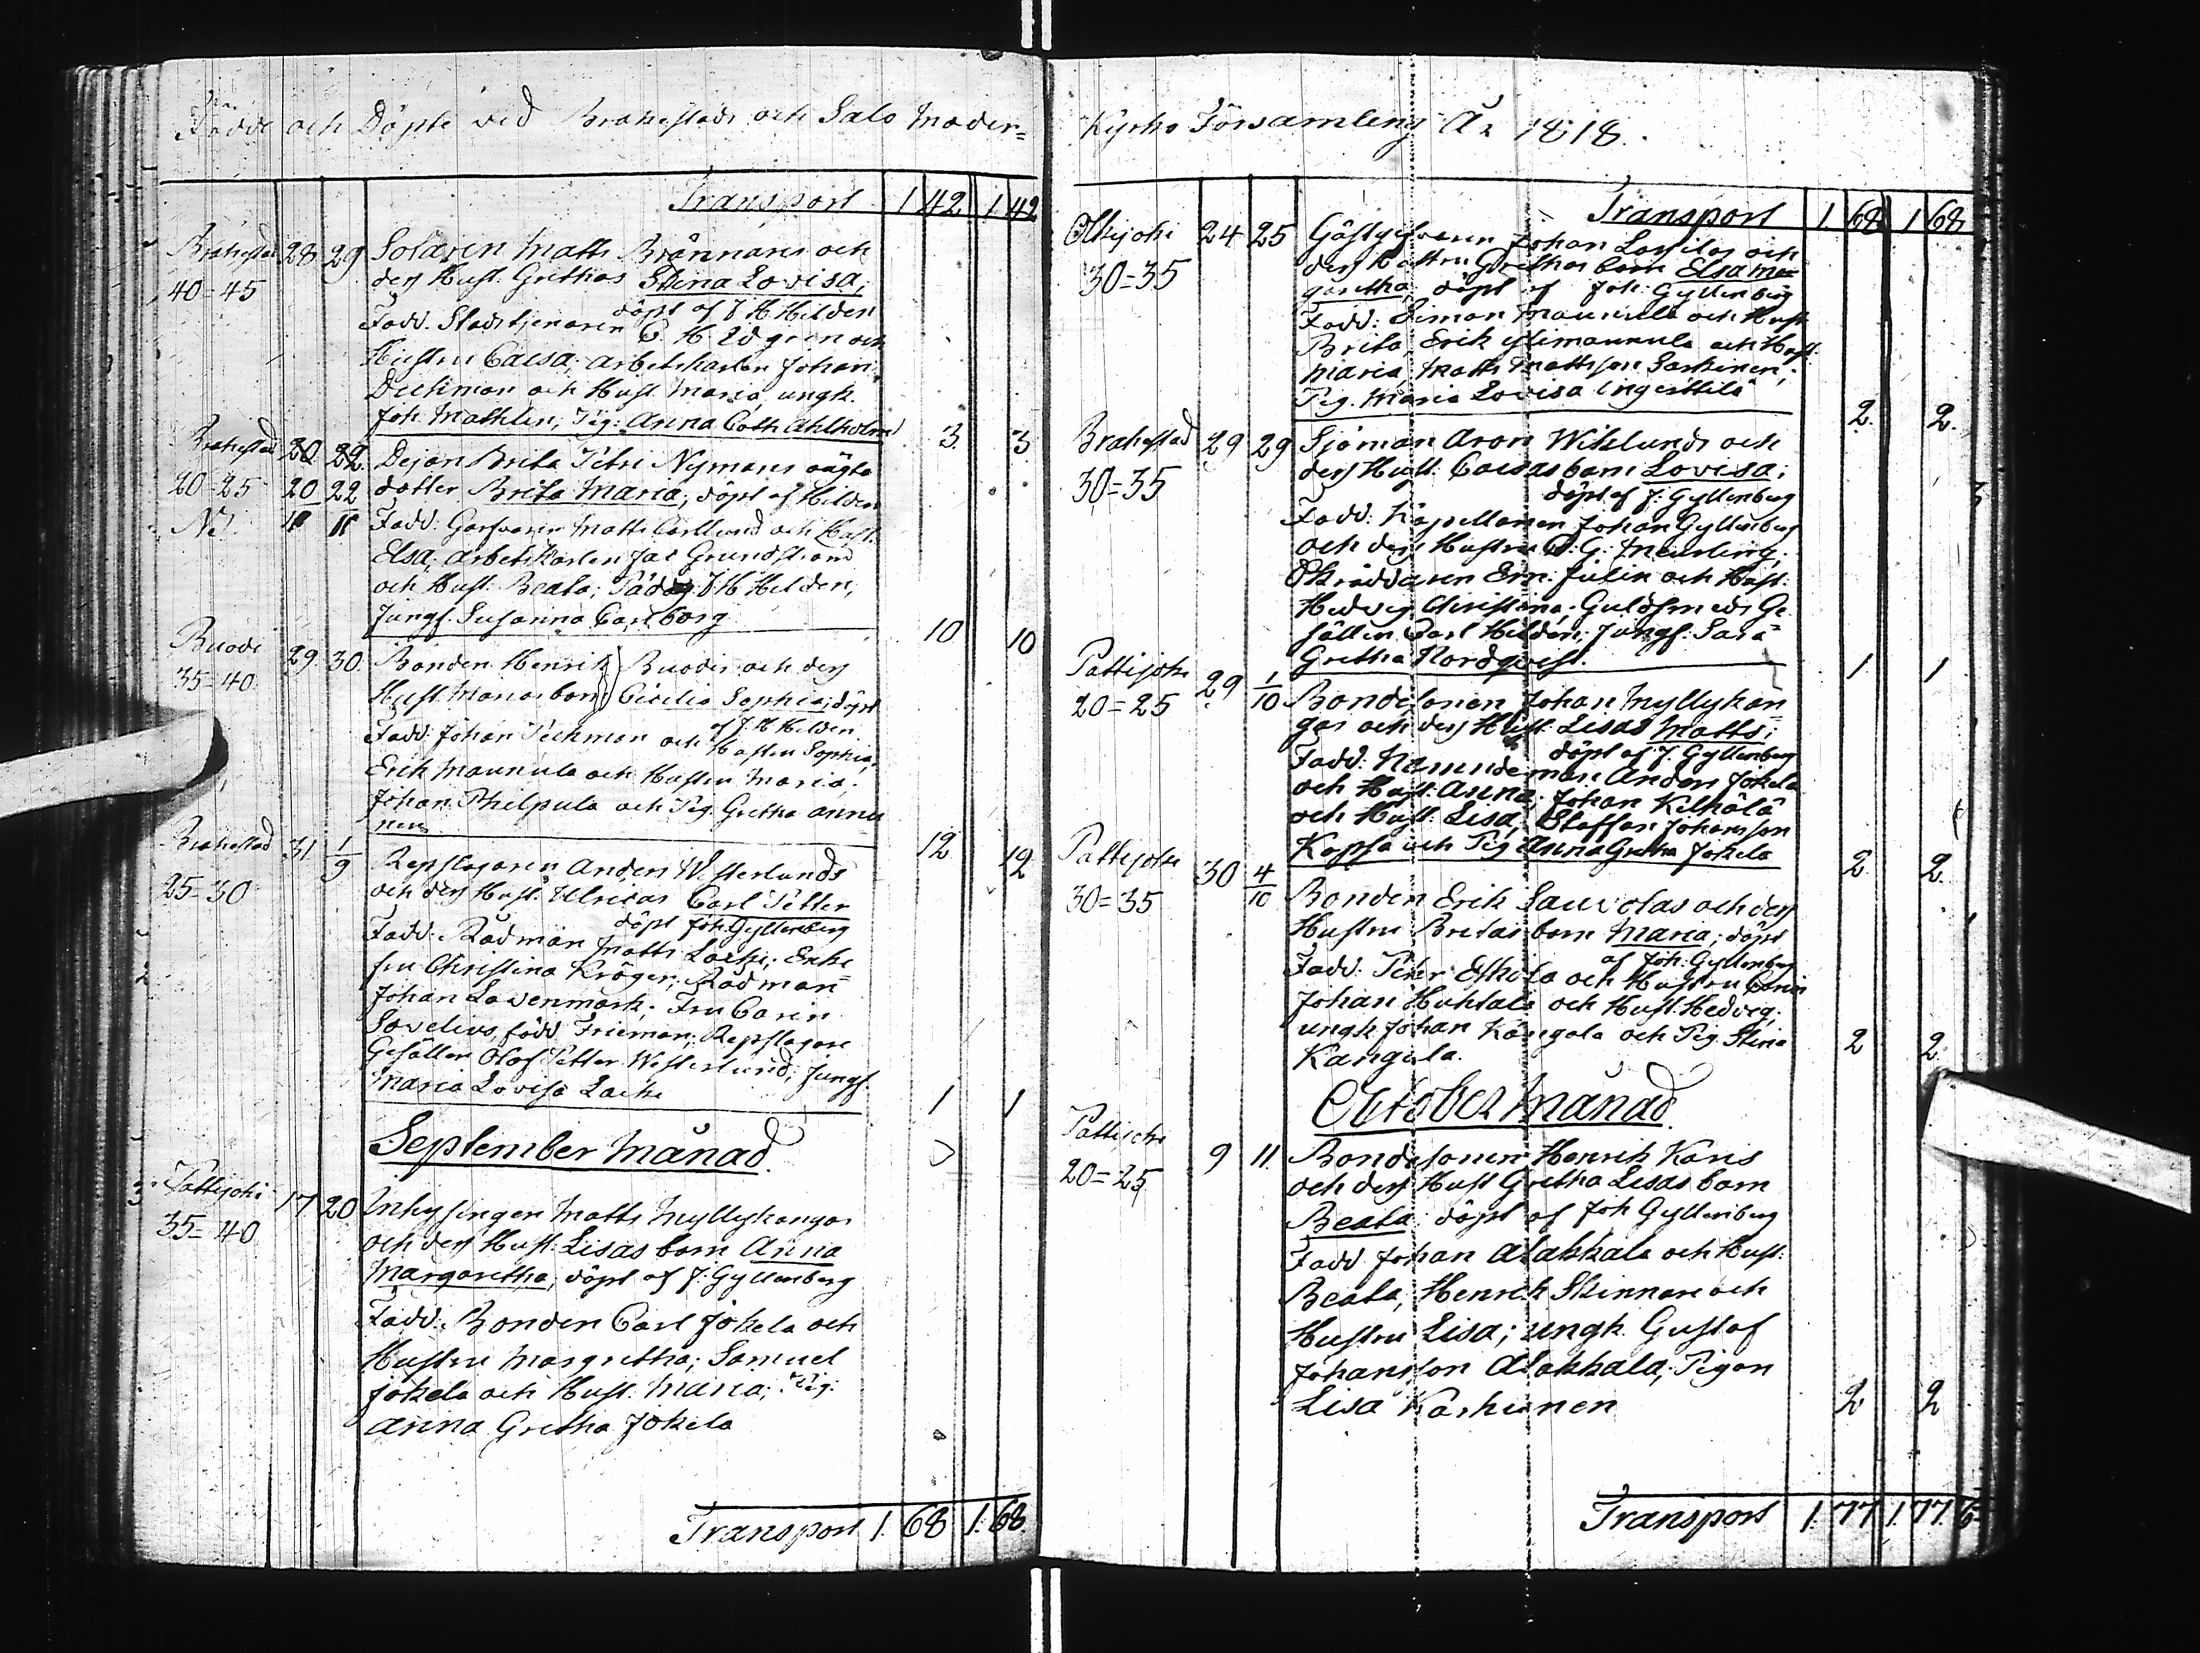 Födde och Döpte vid Brahestads och Salo Moder=
Transport 1 42 1 42
Brahestad 28 29 Matts Brännares och
40=45 dess Hust. Grethas Stina Lovisa;
döpt af J H Helden
Fadd. Stadstjenaren C. H. Edgren och
Hustru Caisa; arbetskarlen Johan
och Hust. Maria, ungk.
Joh. Mathlin; Pig. Anna Cath Ahlholm 3 3
Brahestad 20 22 Dejan Brita Petri Nymans oägta
20=25 20 22 dotter Brita Maria; döpt af Helden
Fadd: Garfvaren Matts Carllund och Hust.
Elsa; arbetskarlen Jac Grundström
och Hust. Beata; J H Helden,
Jungf. Susanna Carlborg 10 10
Buodi 29 30 Bonden Henrik Buodis och dess
35=40 Hust. Marias barn Cicilia Sophia; döpt
af J. H Helden
Fadd: Johan Pechman och Hustru Sophia,
Erik Maunula och Hustru Maria;
Johan Philpula och Pig. Gretha Annu
nen 12 12
Brahestad 31 1/9 Repslagaren Anders Westerlunds
25=30 och dess Hust. Ulricas Carl Petter
döpt Joh Gyllenberg
Fadd. Rådman Matts Lackz; Enke
fru Christina Kröger; Rådman
Johan Lavenmark; Fru Carin
Sovelius född Frieman; Repslagare
Gesällen Olof Petter Westerlund; Jungf.
Maria Lovisa Lackz 1 1
September Månad.
Pattijoki 17 20 Inhysingen Matts Myllykangas
35=40 och dess Hust: Lisas barn Anna
Margaretha; döpt af J. Gyllenberg
Fadd: Bonden Carl Jokela och
Hustru Margretha; Samuel
Jokela och Hust. Maria; Pig:
Anna Gretha Jokela
Transport 1. 68 1. 68.
Kyrko Församling År 1818.
Transport 1. 68 1 68
Olkijoki 24 25 Gästgifvaren Johan Lassilas och
30=35 dess Hustru Grethas barn Elsa Mar
garetha; döpt af Joh: Gyllenberg
Fadd: Simon Maunula och Hust
Brita, Erik Ylimaunula och Hust.
Maria, Matts Mattsson Sarkinen;
Pig. Maria Lovisa Ingerttilä 2. 2.
Brahestad 29 29 Sjöman Aron Wiklunds och
30=35 dess Hust: Caisas barn Lovisa;
döpt af J: Gyllenberg
Fadd: Kapellanen Johan Gyllenberg
och dess Hustru G: Meurling;
Skräddaren Ern: Julin och Hust.
Hedvig Christina; Guldsmeds Ge
sällen Carl Helden; Jungf. Sara
Gretha Nordqvist. 1. 1
Pattijoki 29 1/10 Bondesonen Johan Myllykan
20=25 gas och dess Hust. Lisas Matts;
döpt af J. Gyllenberg
Fadd: Nämndeman Anders Jokela
och Hust: Anna; Johan Kelhälä
och Hust. Lisa; Staffan Johansson
Kopsa och Pig Anna Gretha Jokela 2 2.
Pattijoki 30 4/10 Bonden Erik Sauvolas och dess
30=35 Hustru Britas barn Maria; döpt
af Joh: Gyllenberg
Fadd: Petter Eskola och Hustru Carin
Johan Huhtala och Hust. Hedvig;
ungk Johan Kangala och Pig. Stina
Kangala. 2 2
October Månad.
Pattijoki 9 11. Bondesonen Henrik Karis
20=25 och dess Hust Gretha Lisas barn
Beata; döpt af Joh Gyllenberg
Fadd Johan Alakkala och Hust:
Beata, Henrik Skinnare och
Hustru Lisa; ungk. Gustaf
Johansson Alakkala; Pigan
Lisa Karhunen 2 2
Transport 1. 77 1. 77.